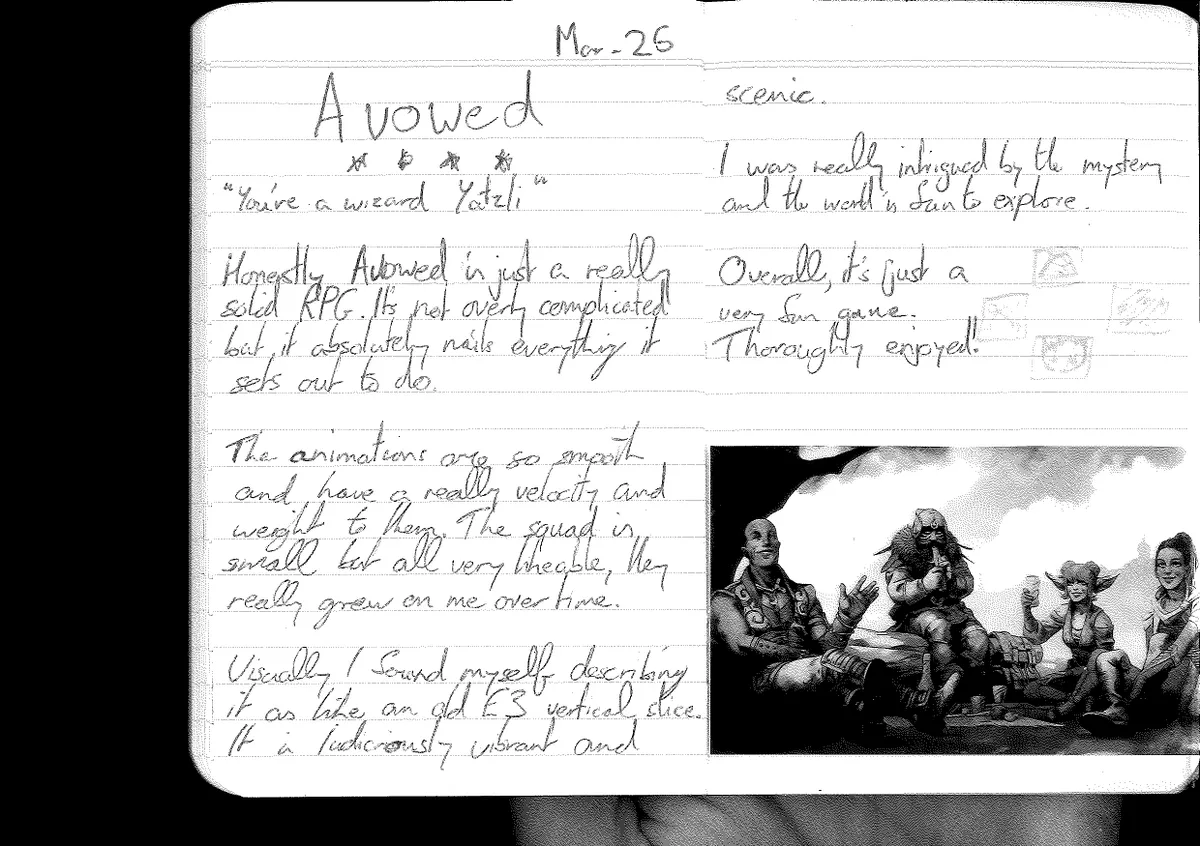 Mar-25
Avowed
"You're a wizard Yatzli"
Honestly Avowed is just a really
solid RPG. It's not overly complicated
but it absolutely nails everything it
sets out to do.
The animations are so smooth
and have a really velocity and
weight to them. The squad is
small but all very likeable, they
really grew on me over time.
Visually I found myself describing
it as like an old E3 vertical slice.
It is ludicrously vibrant and
scenic.
I was really intrigued by the mystery
and the world is fun to explore.
Overall, it's just a
very fun game.
Thoroughly enjoyed!